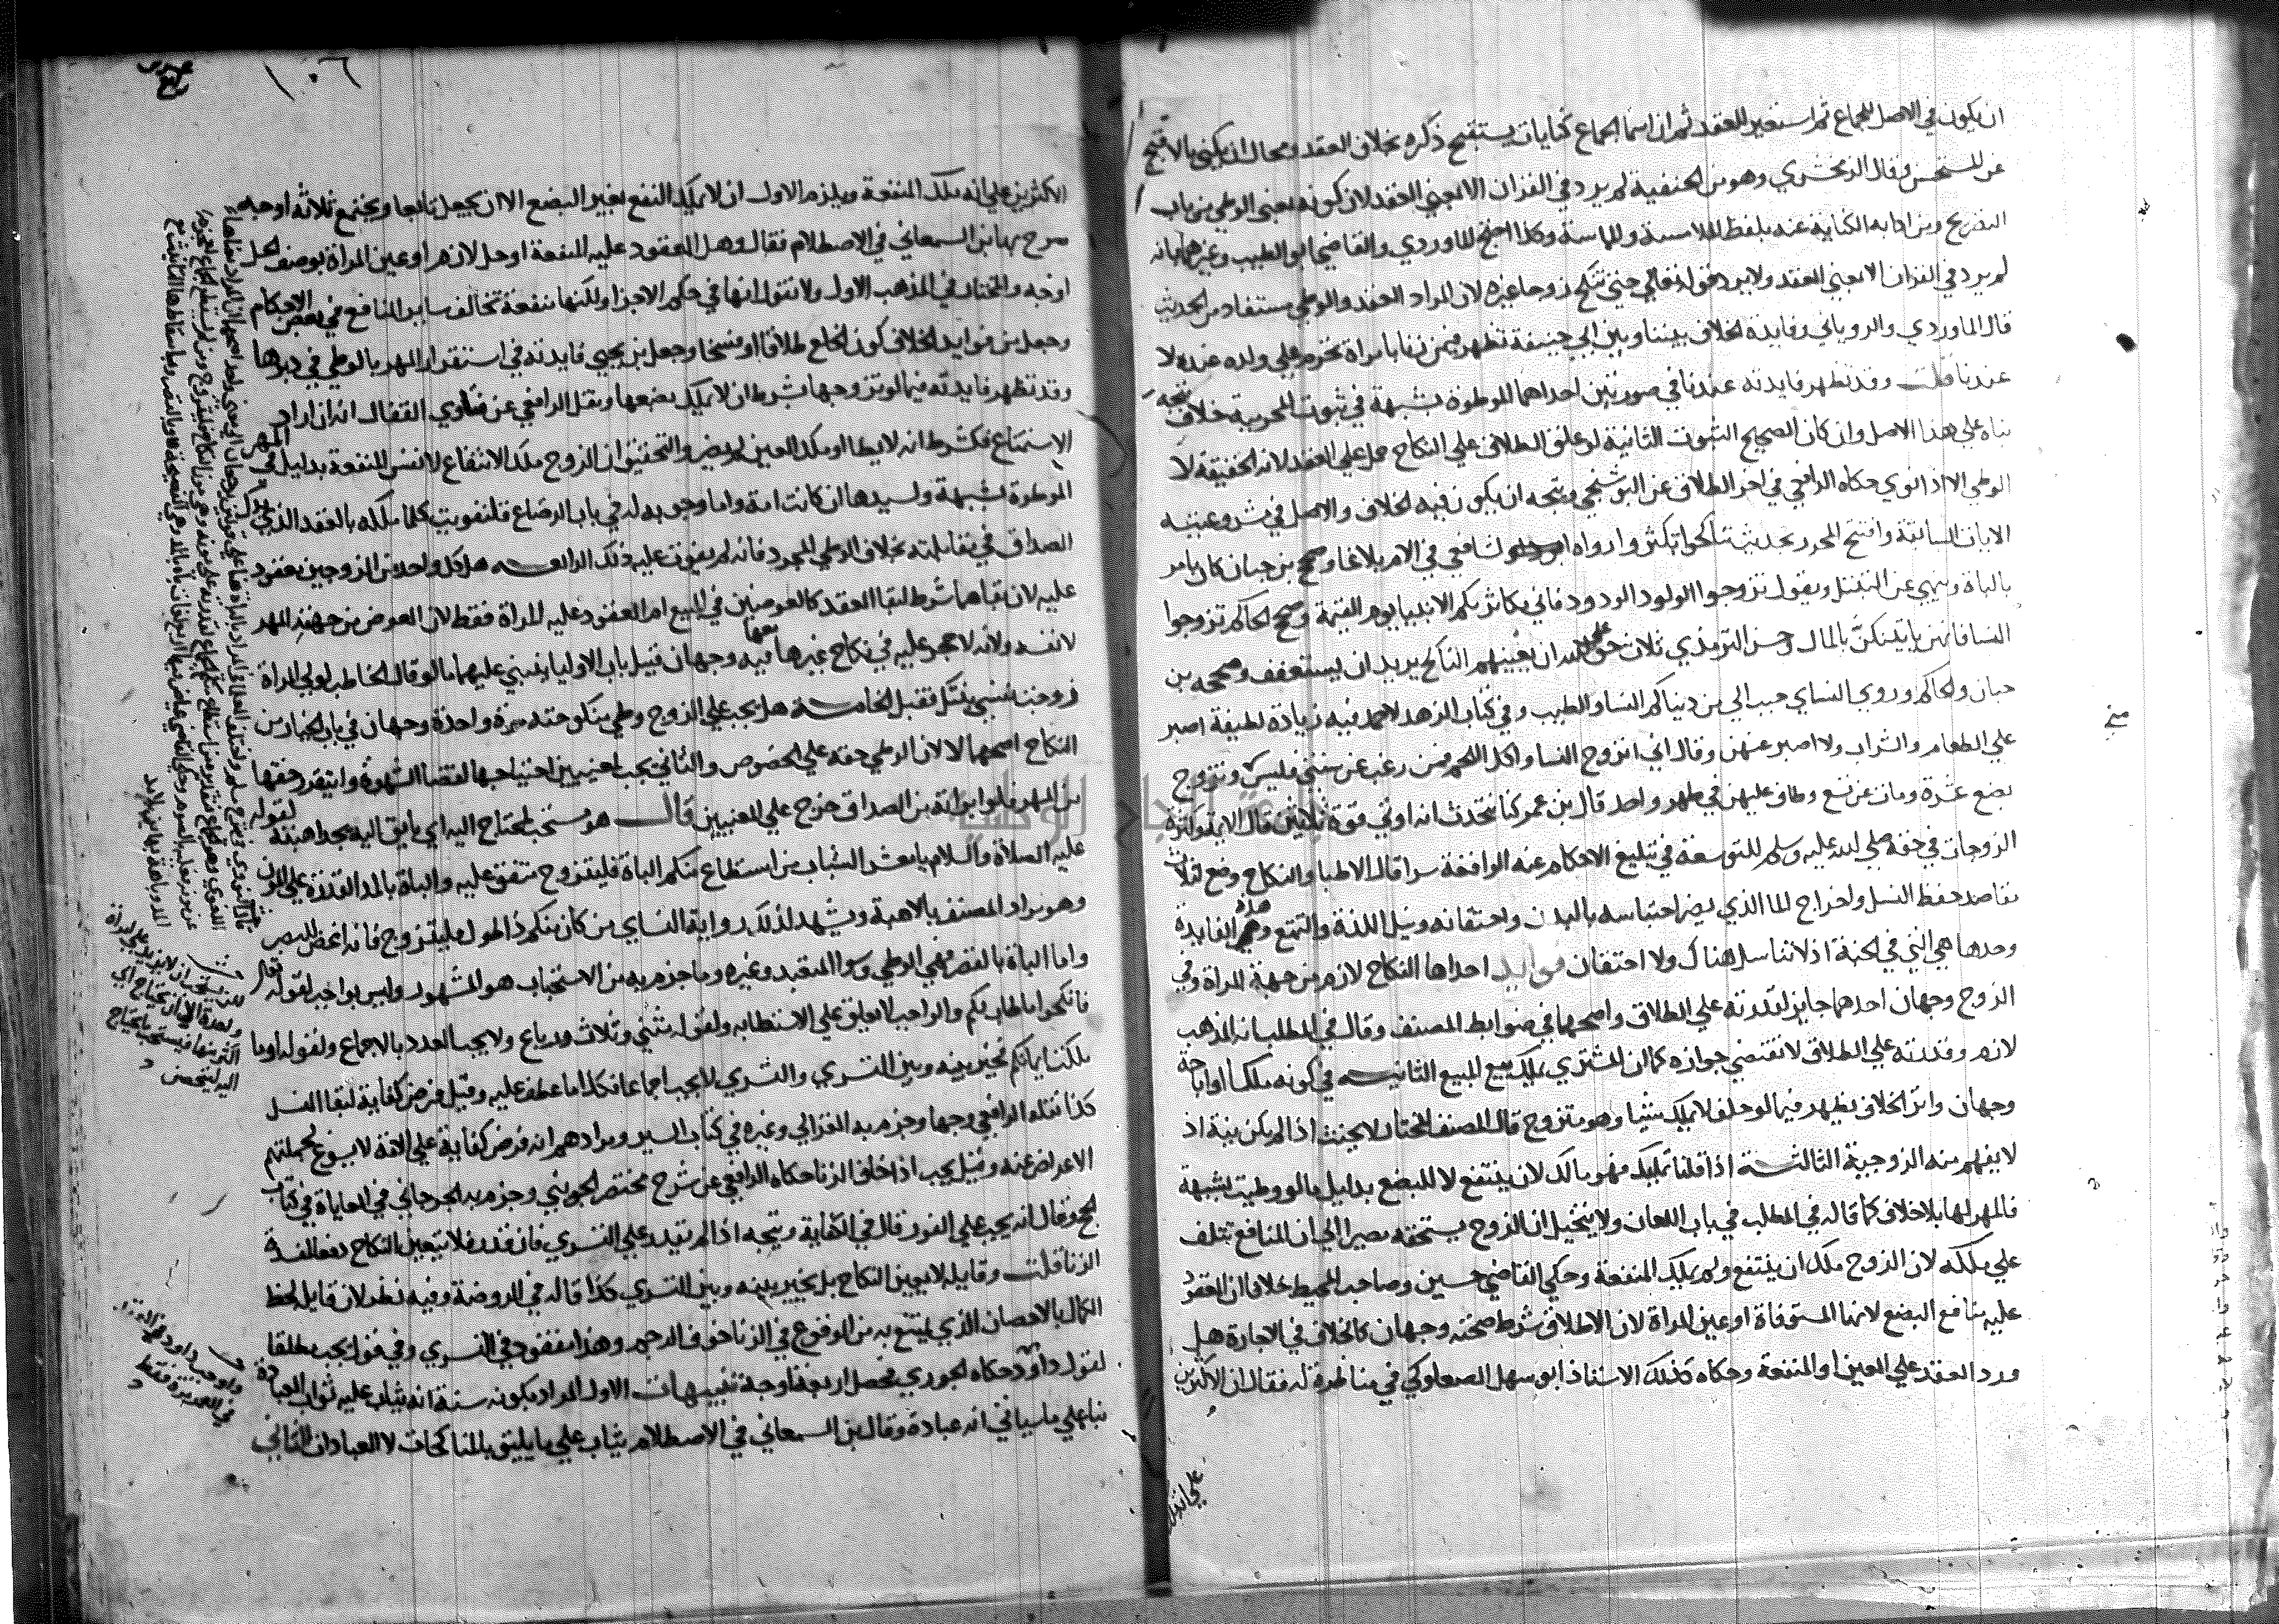 ان يكون في الاصل للجماع ثم استعير للعقد ثم ان اسما الجماع كنايات يستقبح ذكره بخلاف العقد ومحال ان يكنى بالاقبح
عن المستحسن وقال الزمخشري وهو من الحنفية لم يرد في القران الا بمعنى العقد لان كونه بمعنى الوطي من باب
التصريح ومن ادابه الكناية عنه بلفظ الملامسة والمماسة وكذا احتج الماوردي والقاضي ابو الطيب وغيرهما بانه
لم يرد في القران الا بمعنى العقد ولا يرد قوله تعالى حتى تنكح زوجا غيره لان المراد العقد والوطي مستفاد من الحديث
قال الماوردي والروياني وفايدة الخلاف بيننا وبين ابي حنيفة تظهر فيمن زنا بامراة تحرم علي ولده عنده لا
عندنا قلت وقد تظهر فايدته عندنا في صورتين احداهما الموطوة بشبهة في ثبوت المحرمية خلاف
بناه علي هذا الاصل وان كان الصحيح الثبوت الثانية لو علق الطلاق علي النكاح حمل علي العقد لانه الحقيقة لا
الوطي الا اذا نوي حكاه الرافعي في اخر الطلاق عن البوشنجي ويتجه ان يكون فيه الخلاف والاصل في مشروعيته
الايات السابقة وافتتح المحرر بحديث تناكحوا تكثروا رواه الشافعي في الام بلاغا وصحح بن حبان كان يامر
بالباة وينهي عن التبتل ويقول تزوجوا الولود الودود فاني مكاثر بكم الانبيا يوم القيمة وصحح الحاكم تزوجوا
النسا فانهن ياتينكن بالمال وحسن الترمذي ثلاث حق علي الله ان يعينهم الناكح يريد ان يستعفف وصححه بن
حبان والحاكم وروي النساي حبب الي من دنياكم النسا والطيب وفي كتاب الزهد لاحمد فيه زيادة لطيفة اصبر
علي الطعام والشراب ولا اصبر عنهن وقال اني اتزوج النسا واكل اللحم فمن رغب عن سنتي فليس وتزوج
بضع عشرة ومات عن تسع وطاف عليهن في طهر واحد قال بن عمر كنا نتحدث انه اوتي قوة ثلاثين قال الايمة وكثرة
الزوجات في حقه صلي الله عليه وسلم للتوسعة في تبليغ الاحكام عنه الواقعة سرا قال الاطبا والنكاح وضع لثلاث
مقاصد حفظ النسل واخراج الما الذي يضر احتباسه بالبدن واحتقانه ونيل اللذة والتمتع وهي هذه الفايدة
وحدها هي التي في الجنة اذ لا تناسل هناك ولا احتقان فوايد احداها النكاح لازم من جهة المراة وفي
الزوج وجهان احدهما جايز لقدرته علي الطلاق واصحهما في ضوابط المصنف وقال في المطلب انه المذهب
لازم وقدرته علي الطلاق لا تقتضي جوازه كما ان المشتري يملك بيع المبيع الثانيه في كونه ملكا او اباحة
وجهان واثر الخلاف يظهر فيما لو حلف لا يملك شيا وهو متزوج قال المصنف المختار لا يحنث اذا لم يكن بنية اذ
لا يفهم منه الزوجية الثالثة اذا قلنا تمليك فهو مالك لان ينتفع لا للبضع بدليل ما لو وطيت بشبهة
فالمهر لها بلا خلاف كما قاله في المطلب في باب اللعان ولا يتخيل ان الزوج يستحقه مصيرا الي ان المنافع تتلف
علي ملكه لان الزوج ملك ان ينتفع ولم يملك المنفعة وحكي القاضي حسين وصاحب المحيط خلافا ان العقود
عليه منافع البضع لانها المستوفاة او عين المراة لان الاطلاق شرط صحته وجهان كالخلاف في الاجارة هل
ورد العقد علي العين او المنفعة وحكاه كذلك الاستاذ ابو سهل الصعلوكي في مناظرة له فقال ان الاكثرين
١٠٦
الاكثرين علي انه ملك المنفعة ويلزم الاول ان لا يملك النفع بغير البضع الا ان يجعل تابعا ويجتمع ثلاثة اوجه
صرح بها بن السمعاني في الاصطلام فقال وهل المعقود عليه المنفعة او حل لازم او عين المراة بوصف الحل
اوجه والمختار في المذهب الاول ولا نقول انها في حكم الاجزا ولكنها منفعة تخالف ساير المنافع في بعض الاحكام
وجعل من فوايد الخلاف كون الخلع طلاقا او فسخا وجعل بن يحيي فايدته في استقرار المهر بالوطي في دبرها
وقد تظهر فايدته فيما لو تزوجها بشرط ان لا يملك بضعها ونقل الرافعي عن فتاوي القفال انه ان اراد
الاستمتاع فكشرط انه لا يطا او ملك العين لم يضر والتحقيق ان الزوج ملك الانتفاع لا نفس المنفعة بدليل ان المهر في
الموطوة بشبهة ولسيدها ان كانت امة واما وجوبه له في باب الرضاع فلتفويت كلما ملكه بالعقد الذي بذل
الصداق في مقابلته بخلاف الوطي المجرد فانه لم يفوت عليه ذلك الرابعه هل كل واحد من الزوجين معقود
عليه لان بقاهما شرط لبقا العقد كالعوضين في المبيع ام المعقود عليه المراة فقط لان العوض من جهته المهر
لا نفسه ولانه لا حجر عليه في نكاح غيرها معها فيه وجهان قبيل باب الاوليا ينبني عليهما ما لو قال الخاطب لولي المراة
زوجت نفسي بنتك فقبل الخامسة هل يجب علي الزوج وطي منكوحته مرة واحدة وجهان في باب الخيار من
النكاح اصحهما لا لان الوطي حقه علي الخصوص والثاني يجب لمعنيين احتياجها لقضا الشهوة وليتقرر حقها
من المهر فلو ابراته من الصداق خرج علي المعنيين قال هو مستحب لمحتاج اليه اي تايق اليه يجد اهبته لقوله
عليه الصلاة والسلام يا معشر الشباب من استطاع منكم الباة فليتزوج متفق عليه والباة بالمد القدرة علي المون
وهو مراد المصنف بالاهبة ويشهد لذلك رواية النساي من كان منكم ذا طول فليتزوج فانه اغض للبصر
واما الباة بالقصر فهي الوطي وسوا المتعبد وغيره وما جزم به من الاستحباب هو المشهور وليس بواجب لقوله تعالي
فانكحوا ما طاب لكم والواجب لا يعلق علي الاستطابة ولقوله مثني وثلاث ورباع ولا يجب العدد بالاجماع ولقوله او ما
ملكت ايمانكم فخير بينه وبين التسري والتسري لا يجب اجماعا فكذا ما عطف عليه وقيل فرض كفاية لبقا النسل
كذا نقله الرافعي وجها وجزم به الغزالي وغيره في كتاب السير ومرادهم انه فرض كفاية علي الامة لا يسوغ لجملتهم
الاعراض عنه وقيل يجب اذا خاف الزنا حكاه الرافعي عن شرح مختصر الجويني وجزم به الجرجاني في المعاياة في كتاب
الحج وقال انه يجب علي الفور قال في الكفاية ويتجه اذا لم يقدر علي التسري فان قدر فلا يتعين النكاح دفع المفسدة
الزنا قلت وقايله لا يعين النكاح بل يخير بينه وبين التسري كذا قاله في الروضة وفيه نظر لان قايله لحظ
الكمال بالاحصان الذي يمتنع به من الوقوع في الزنا خوف الرجم وهذا مفقود في التسري وفي قول يجب مطلقا
لقول داود حكاه الجوري فحصل اربعة اوجه تنبيهات الاول المراد بكونه سنة انه يثاب عليه ثواب العبادة
بنا علي ما سياتي انه عبادة وقال بن السمعاني في الاصطلام يثاب علي ما يليق بالمناكحات لا العبادات الثاني